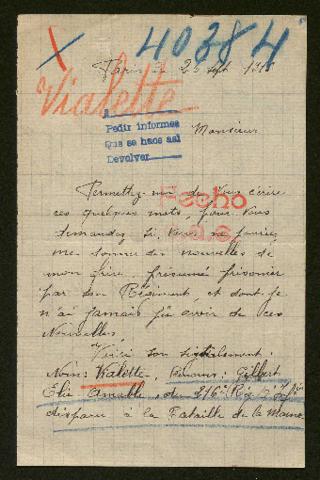 40384
Paris le 25 sept 1915
Vialette
Pedir informes
Que se hace asi
Devolver
Monsieur
Permettez-moi de vous écrire
Hecho
ces quelques mots, pour vous
demandez si vous ne pouviez
me donner des nouvelles de
mon frère, présumé prisonier
par son Régiment, et dont je
n'ai jamais pu avoir de ces
Nouvelles
Voici son signalement:
Nom: Vialette, Prénoms: Gilbert
Elie Amable, du 276e Reg d'Infie
disparu à la Bataille de la Marne